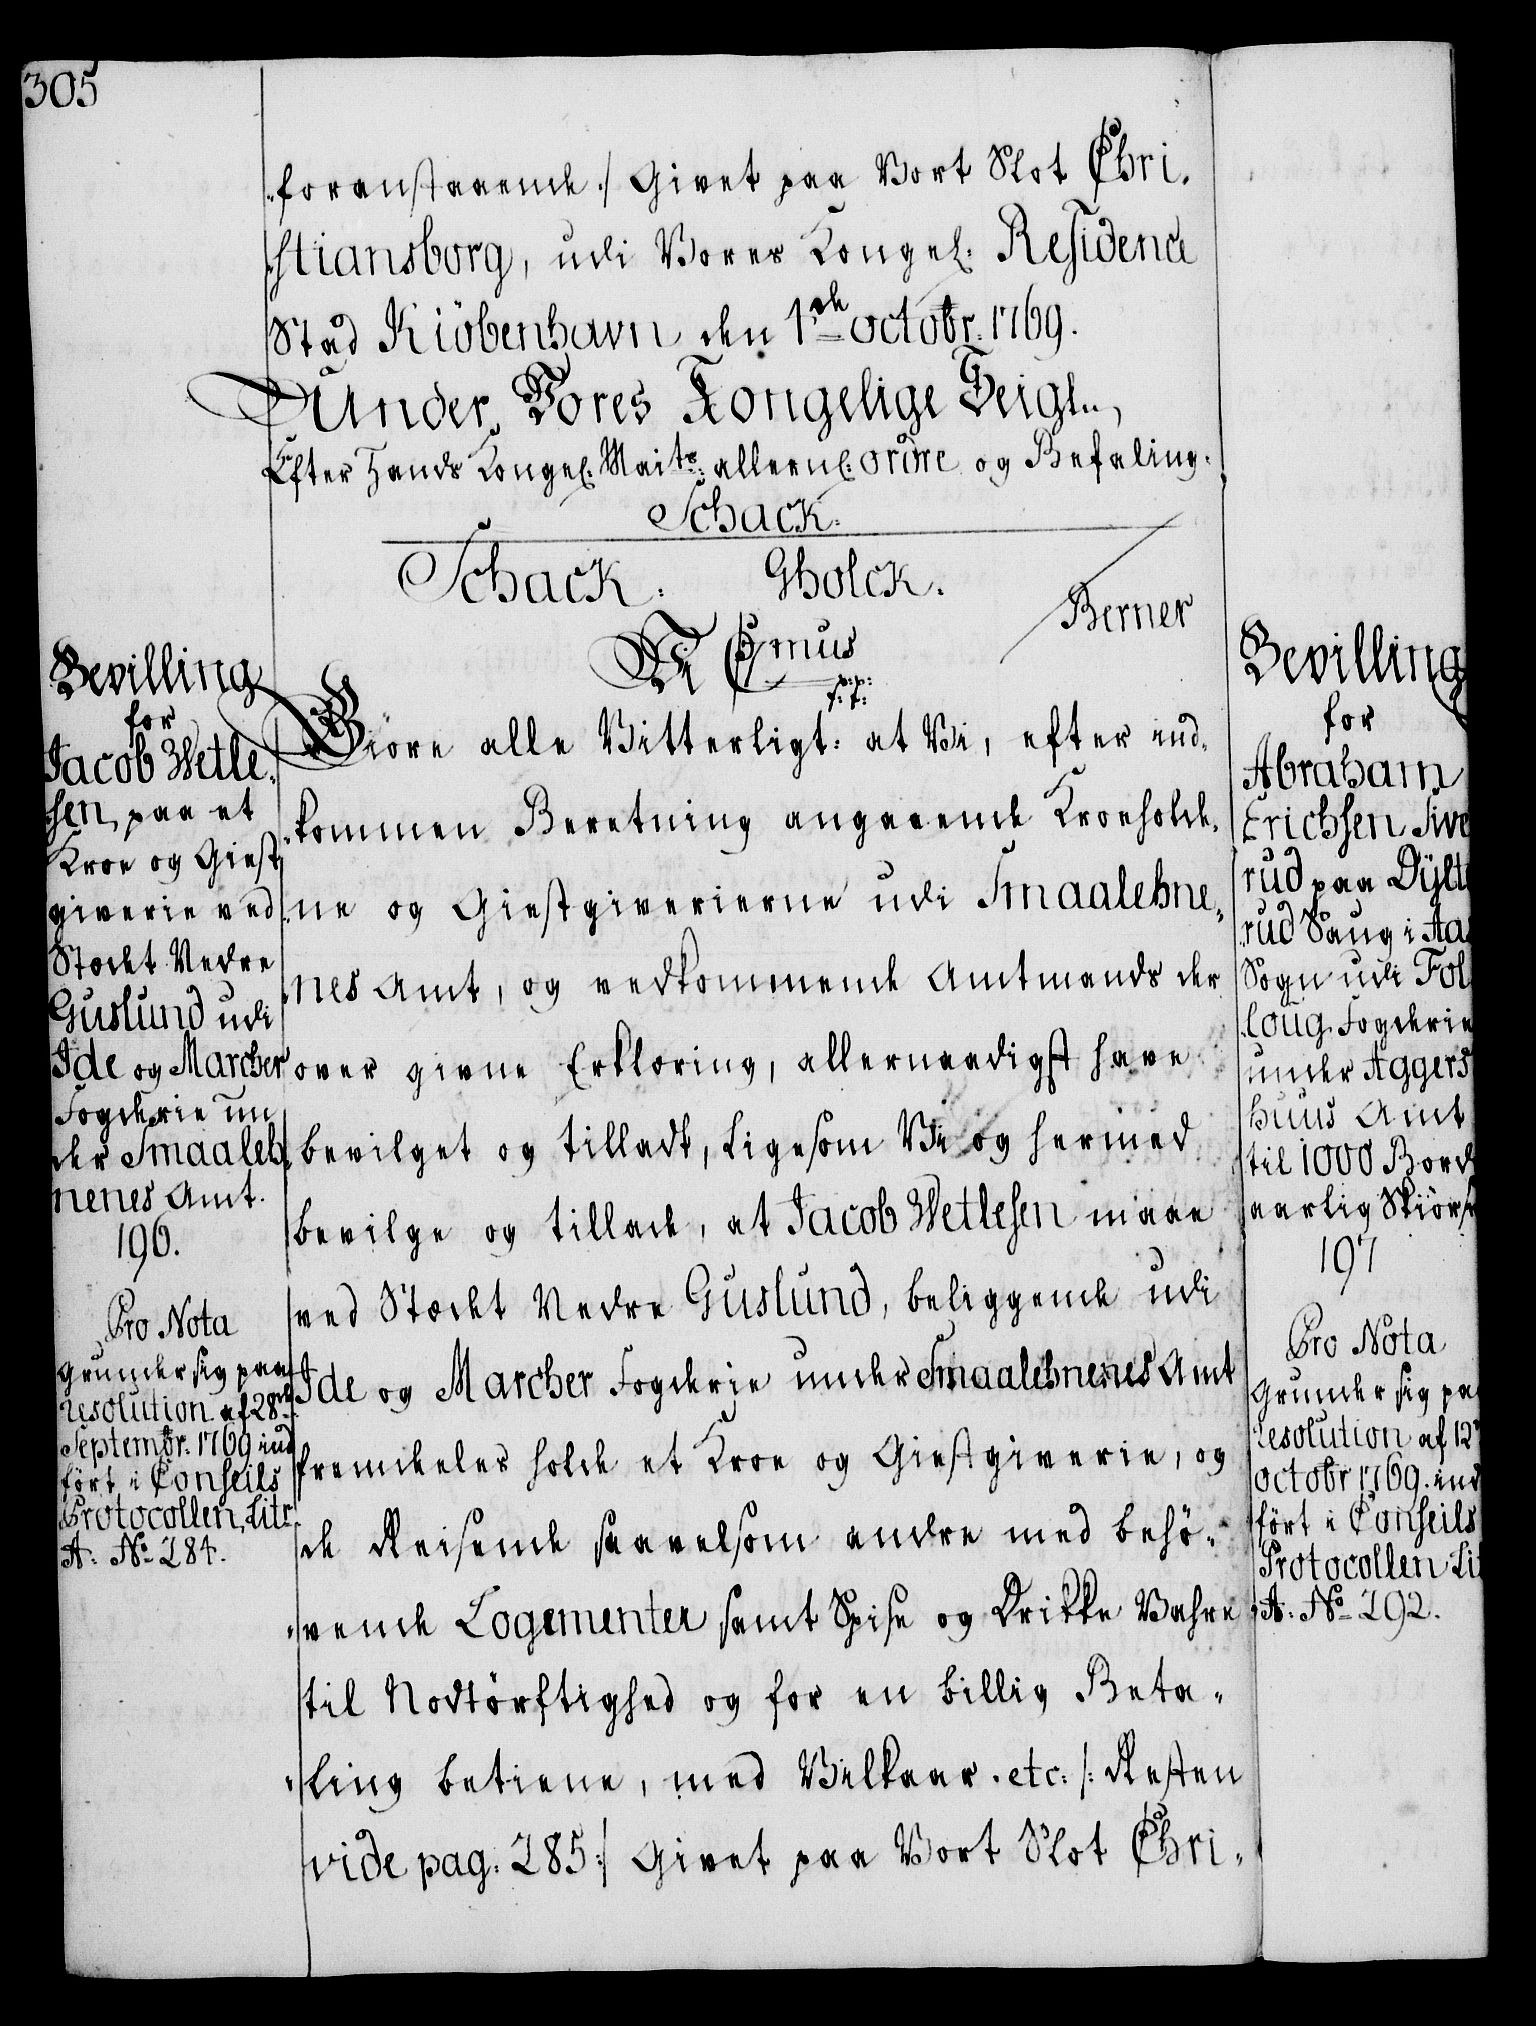 305
foranstaaende :/ Givet paa Vort Slot Chri„
„stiansborg, udi Vores Kongel: Residence
Stad Kiöbenhavn den 1de octobr: 1769.
Under Vores Kongelige Zeigl.,
Efter Hands Kongel: Maits: allern: ordre og Befaling.
Schack.
Schack. Gholck.
Berner
Vi C7mus
p: p:
t: t:
Bevilling
for
Jacob Wetle„
„sen, paa et
Kroe og Giest
giverie ved
Stædet Nedre
Guslund udi
Ide og Marcher
Fogderie un
der Smaaleh„
nenes Amt.
196.
Pro Nota
grunder sig paa
resolution af 28de
Septembr: 1769 ind
fört i Conseils
Protocollen, Litr.
A: No 284.
Giöre alle Vitterligt: at Vi, efter ind„
„kommen Beretning angaaende Kroeholde„
„ne og Giestgiverierne udi Smaalehne„
„nes Amt, og vedkommende Amtmands der
over givne Erklæring, allernaadigst have
bevilget og tilladt, Ligesom Vi og hermed
bevilge og tillade, at Jacob Wetlesen maae
ved Stædet Nedre Guslund, beliggende udi
Ide og Marcher Fogderie under Smaalehnenes Amt
fremdeles holde et Kroe og Giestgiverie, og
de Reisende saavelsom andre med behö„
„vende Logementer samt Spise og Drikke Vahre
til Nodtörftighed og for en billig Beta„
„ling betiene, med Vilkaar. etc: /: Resten
vide pag: 285:/ Givet paa Vort Slot Chri„
Bevilling
for
Abraham
Erichsen Sive
rud paa Dÿlte
„rud Saug i Aa
Sogn udi Fol
„loug Fogderie
under Aggers
huus Amt
til 1000 Bord
aarlig Skiörs
197
Pro Nota
Grunder sig pa
resolution af 12
octobr 1769. ind
fört i Conseils
Protocollen Lit
A: No 292.